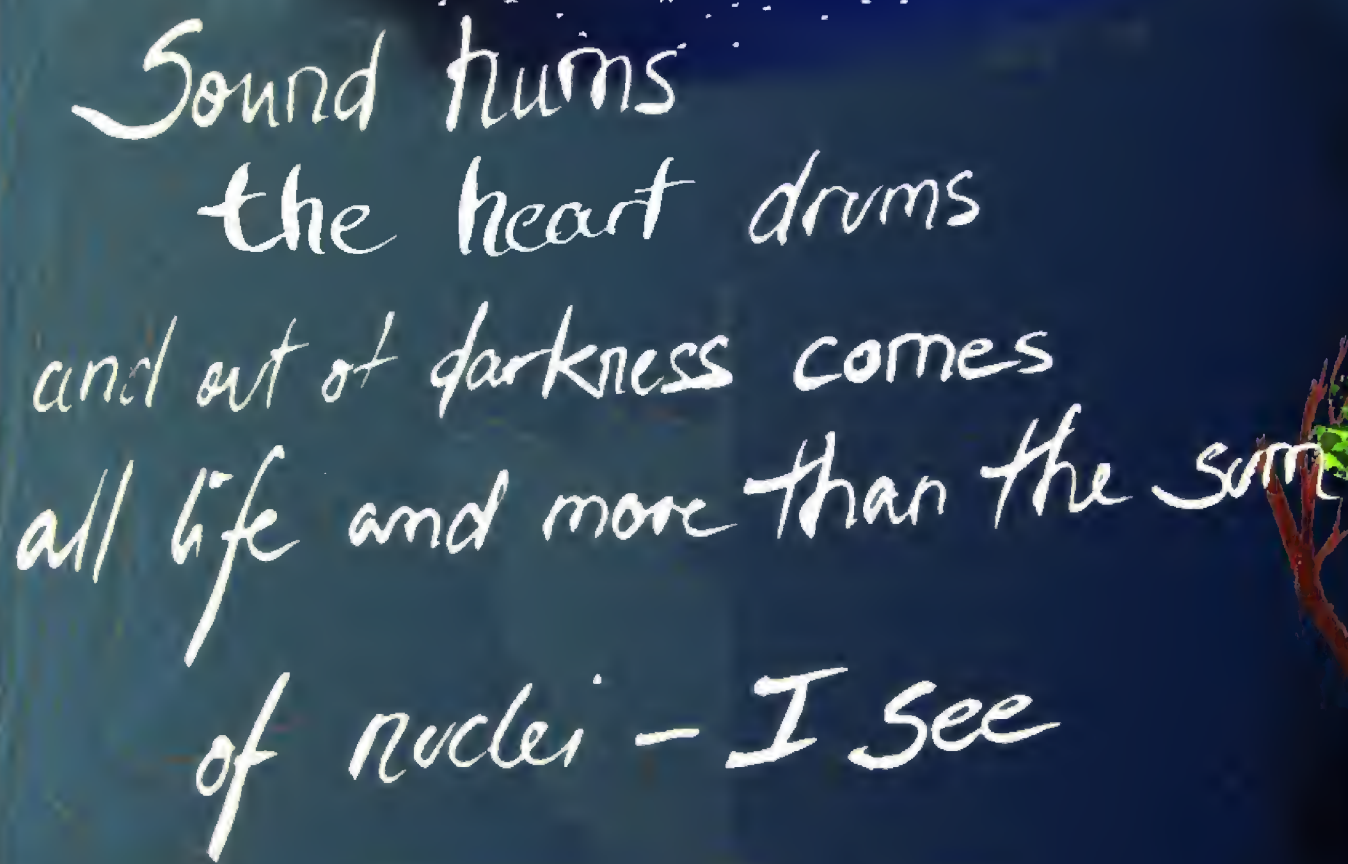 Sound hums
the heart drums
and out of darkness comes
all life and more than the sum
of nuclei – I see